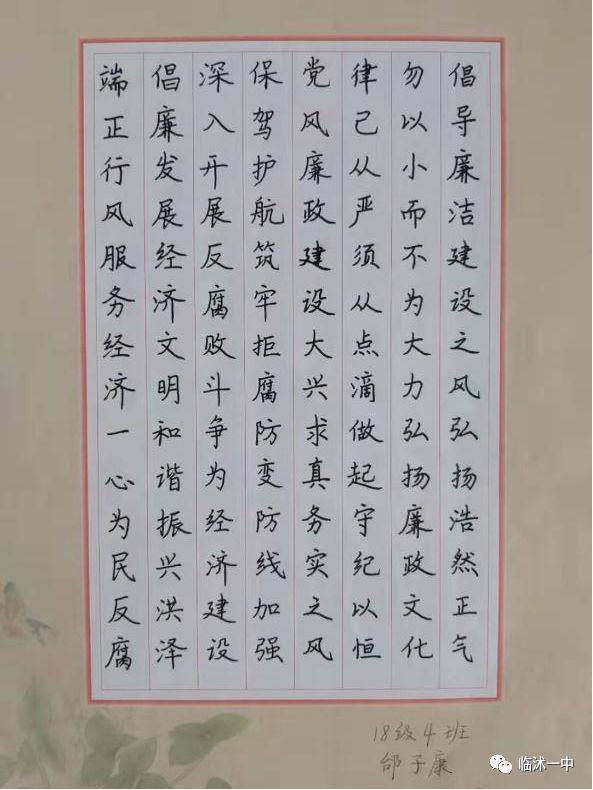 倡导廉洁建设之风弘扬浩然正气
勿以小而不为大力弘扬廉政文化
律己从严须从点滴做起守纪以恒
党风廉政建设大兴求真务实之风
保驾护航筑牢拒腐防变防线加强
深入开展反腐败斗争为经济建设
倡廉发展经济文明和谐振兴洪泽
端正行风服务经济一心为民反腐
18级4班
邰子康
临沭一中